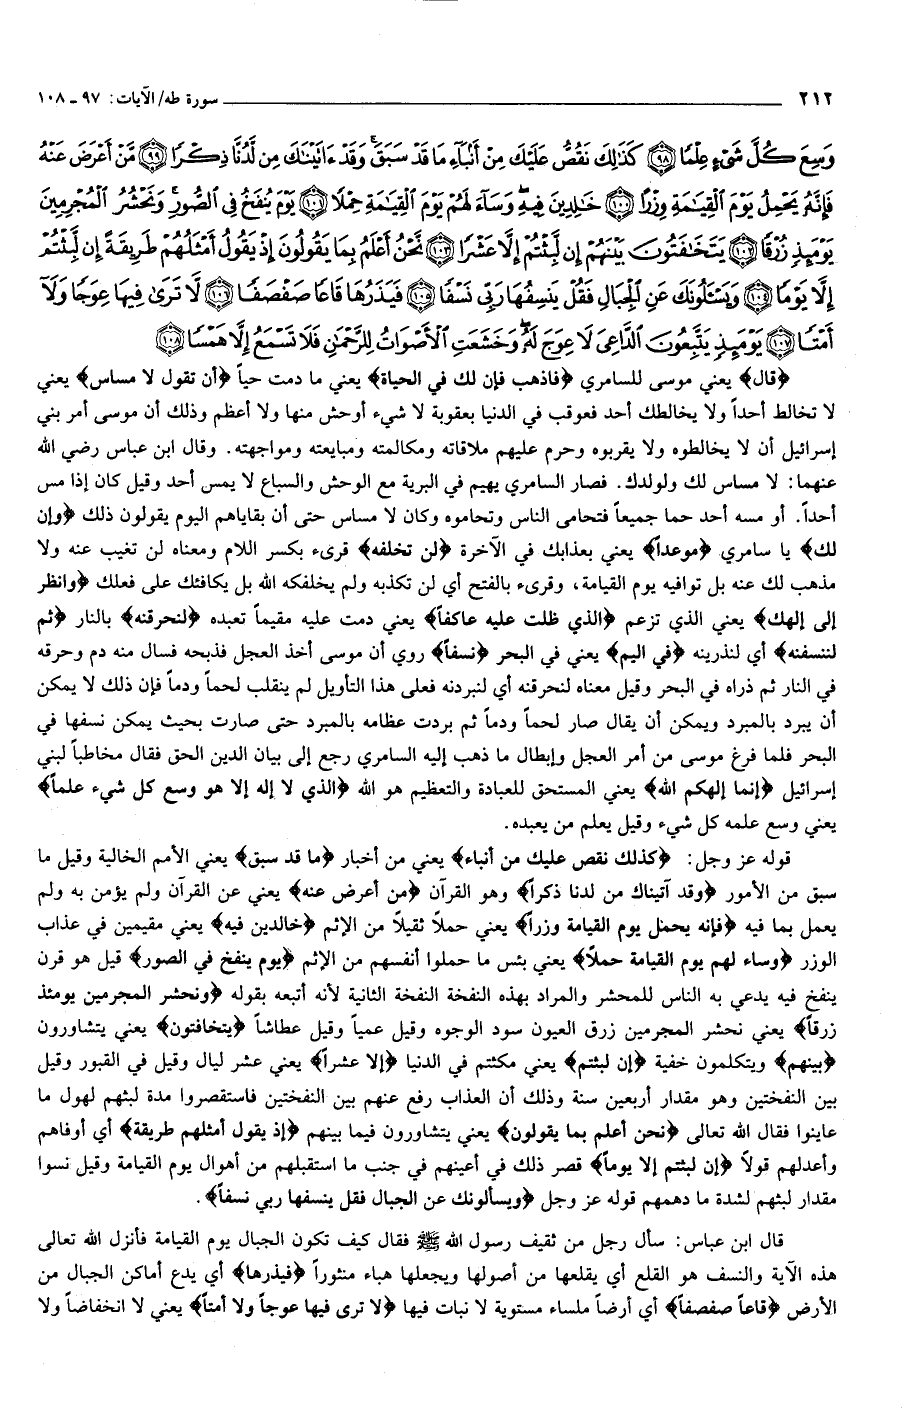 ٢١٢ سورة طه/ الآيات: ٩٧ ـ ١٠٨
وَسِعَ كُلَّ شَيْءٍ عِلْمًا ﴿٩٨﴾ كَذَٰلِكَ نَقُصُّ عَلَيْكَ مِنْ أَنْبَآءِ مَا قَدْ سَبَقَ وَقَدْ ءَاتَيْنَٰكَ مِن لَّدُنَّا ذِكْرًا ﴿٩٩﴾ مَّنْ أَعْرَضَ عَنْهُ
فَإِنَّهُۥ يَحْمِلُ يَوْمَ ٱلْقِيَٰمَةِ وِزْرًا ﴿١٠٠﴾ خَٰلِدِينَ فِيهِ وَسَآءَ لَهُمْ يَوْمَ ٱلْقِيَٰمَةِ حِمْلًا ﴿١٠١﴾ يَوْمَ يُنفَخُ فِى ٱلصُّورِ وَنَحْشُرُ ٱلْمُجْرِمِينَ
يَوْمَئِذٍ زُرْقًا ﴿١٠٢﴾ يَتَخَٰفَتُونَ بَيْنَهُمْ إِن لَّبِثْتُمْ إِلَّا عَشْرًا ﴿١٠٣﴾ نَّحْنُ أَعْلَمُ بِمَا يَقُولُونَ إِذْ يَقُولُ أَمْثَلُهُمْ طَرِيقَةً إِن لَّبِثْتُمْ
إِلَّا يَوْمًا ﴿١٠٤﴾ وَيَسْـَٔلُونَكَ عَنِ ٱلْجِبَالِ فَقُلْ يَنسِفُهَا رَبِّى نَسْفًا ﴿١٠٥﴾ فَيَذَرُهَا قَاعًا صَفْصَفًا ﴿١٠٦﴾ لَّا تَرَىٰ فِيهَا عِوَجًا وَلَآ
أَمْتًا ﴿١٠٧﴾ يَوْمَئِذٍ يَتَّبِعُونَ ٱلدَّاعِىَ لَا عِوَجَ لَهُۥ وَخَشَعَتِ ٱلْأَصْوَاتُ لِلرَّحْمَٰنِ فَلَا تَسْمَعُ إِلَّا هَمْسًا ﴿١٠٨﴾
﴿قال﴾ يعني موسى للسامري ﴿فاذهب فإن لك في الحياة﴾ يعني ما دمت حياً ﴿أن تقول لا مساس﴾ يعني
لا تخالط أحداً ولا يخالطك أحد فعوقب في الدنيا بعقوبة لا شيء أوحش منها ولا أعظم وذلك أن موسى أمر بني
إسرائيل أن لا يخالطوه ولا يقربوه وحرم عليهم ملاقاته ومكالمته ومبايعته ومواجهته. وقال ابن عباس رضي الله
عنهما: لا مساس لك ولولدك. فصار السامري يهيم في البرية مع الوحش والسباع لا يمس أحد وقيل كان إذا مس
أحداً. أو مسه أحد حما جميعاً فتحامى الناس وتحاموه وكان لا مساس حتى أن بقاياهم اليوم يقولون ذلك ﴿وإن
لك﴾ يا سامري ﴿موعداً﴾ يعني بعذابك في الآخرة ﴿لن تخلفه﴾ قرىء بكسر اللام ومعناه لن تغيب عنه ولا
مذهب لك عنه بل توافيه يوم القيامة، وقرىء بالفتح أي لن تكذبه ولم يخلفكه الله بل يكافئك على فعلك ﴿وانظر
إلى إلهك﴾ يعني الذي تزعم ﴿الذي ظلت عليه عاكفاً﴾ يعني دمت عليه مقيماً تعبده ﴿لنحرقنه﴾ بالنار ﴿ثم
لننسفنه﴾ أي لنذرينه ﴿في اليم﴾ يعني في البحر ﴿نسفاً﴾ روي أن موسى أخذ العجل فذبحه فسال منه دم وحرقه
في النار ثم ذراه في البحر وقيل معناه لنحرقنه أي لنبردنه فعلى هذا التأويل لم ينقلب لحماً ودماً فإن ذلك لا يمكن
أن يبرد بالمبرد ويمكن أن يقال صار لحماً ودماً ثم بردت عظامه بالمبرد حتى صارت بحيث يمكن نسفها في
البحر فلما فرغ موسى من أمر العجل وإبطال ما ذهب إليه السامري رجع إلى بيان الدين الحق فقال مخاطباً لبني
إسرائيل ﴿إنما إلهكم الله﴾ يعني المستحق للعبادة والتعظيم هو الله ﴿الذي لا إله إلا هو وسع كل شيء علماً﴾
يعني وسع علمه كل شيء وقيل يعلم من يعبده.
قوله عز وجل: ﴿كذلك نقص عليك من أنباء﴾ يعني من أخبار ﴿ما قد سبق﴾ يعني الأمم الخالية وقيل ما
سبق من الأمور ﴿وقد آتيناك من لدنا ذكراً﴾ وهو القرآن ﴿من أعرض عنه﴾ يعني عن القرآن ولم يؤمن به ولم
يعمل بما فيه ﴿فإنه يحمل يوم القيامة وزراً﴾ يعني حملاً ثقيلاً من الإثم ﴿خالدين فيه﴾ يعني مقيمين في عذاب
الوزر ﴿وساء لهم يوم القيامة حملاً﴾ يعني بئس ما حملوا أنفسهم من الإثم ﴿يوم ينفخ في الصور﴾ قيل هو قرن
ينفخ فيه يدعي به الناس للمحشر والمراد بهذه النفخة النفخة الثانية لأنه أتبعه بقوله ﴿ونحشر المجرمين يومئذ
زرقاً﴾ يعني نحشر المجرمين زرق العيون سود الوجوه وقيل عمياً وقيل عطاشاً ﴿يتخافتون﴾ يعني يتشاورون
﴿بينهم﴾ ويتكلمون خفية ﴿إن لبثتم﴾ يعني مكثتم في الدنيا ﴿إلا عشراً﴾ يعني عشر ليال وقيل في القبور وقيل
بين النفختين وهو مقدار أربعين سنة وذلك أن العذاب رفع عنهم بين النفختين فاستقصروا مدة لبثهم لهول ما
عاينوا فقال الله تعالى ﴿نحن أعلم بما يقولون﴾ يعني يتشاورون فيما بينهم ﴿إذ يقول أمثلهم طريقة﴾ أي أوفاهم
وأعدلهم قولاً ﴿إن لبثتم إلا يوماً﴾ قصر ذلك في أعينهم في جنب ما استقبلهم من أهوال يوم القيامة وقيل نسوا
مقدار لبثهم لشدة ما دهمهم قوله عز وجل ﴿ويسألونك عن الجبال فقل ينسفها ربي نسفاً﴾.
قال ابن عباس: سأل رجل من ثقيف رسول الله ﷺ فقال كيف تكون الجبال يوم القيامة فأنزل الله تعالى
هذه الآية والنسف هو القلع أي يقلعها من أصولها ويجعلها هباء منثوراً ﴿فيذرها﴾ أي يدع أماكن الجبال من
الأرض ﴿قاعاً صفصفاً﴾ أي أرضاً ملساء مستوية لا نبات فيها ﴿لا ترى فيها عوجاً ولا أمتاً﴾ يعني لا انخفاضاً ولا